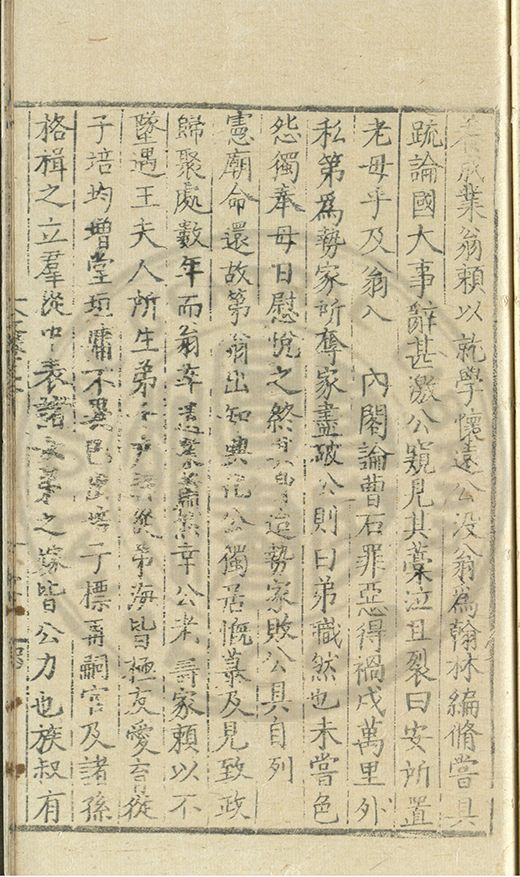 成業翁賴以就學懷遠公没翁為翰林編脩嘗具
䟽論國大事辭甚激公窺見其藁泣且裂曰安所置
老母乎及翁入　內閣論曹石罪惡得禍戍萬里外
私第為勢家所奪家盡破公則曰弟職然也未嘗色
怨獨奉母日慰悅之終勢家敗公具自列
憲廟命還故第翁出知興化公獨居慨慕及見致政
歸聚處數年而翁卒幸公老壽家賴以不
墜遇王夫人所生弟從弟海皆極友愛育從
子培均增堂垣墉不標再嗣官及諸孫
格楫之立羣從中表諸之嫁皆公力也族叔有